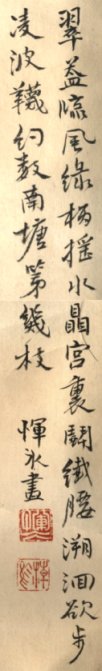 翠蓋臨風綠柄搖水晶宮裏鬪纖腰溯洄欲步
凌波韈約數南塘第幾枝
惲冰畫